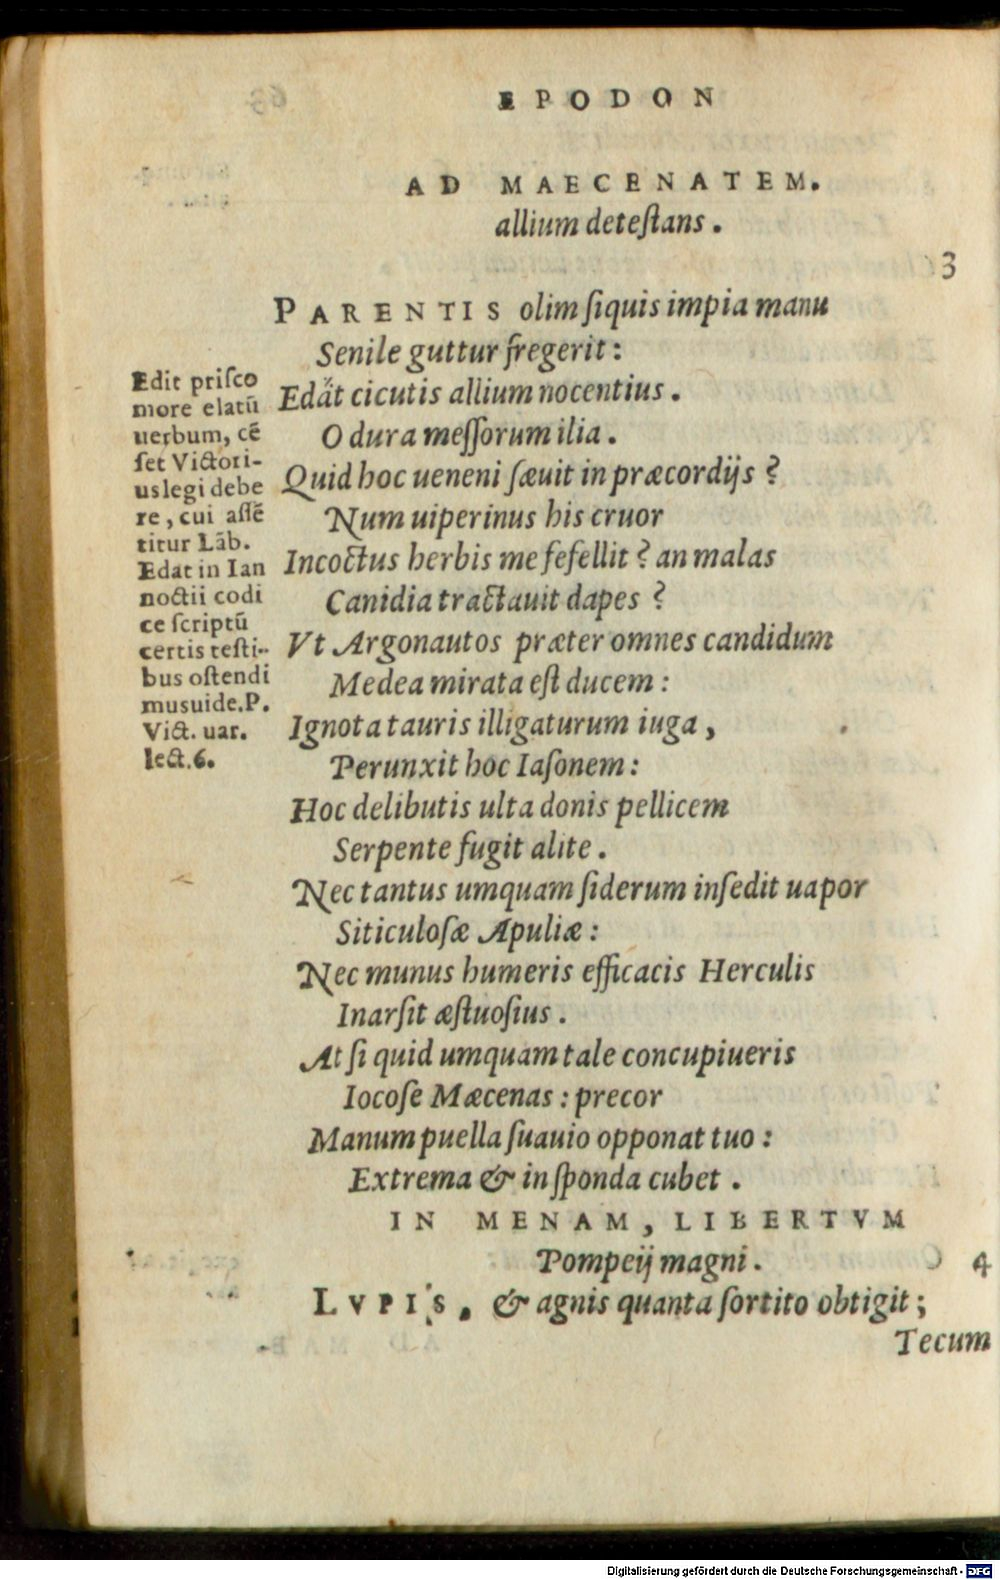 EPODON
AD MAECENATEM.
allium deteſtans.
3
PARENTIS olim ſiquis impia manu
Senile guttur fregerit:
Edãt cicutis allium nocentius.
O dura meſſorum ilia.
Quid hoc ueneni ſæuit in præcordijs?
Num uiperinus his cruor
Incoctus herbis me fefellit? an malas
Canidia tractauit dapes?
Vt Argonautos præter omnes candidum
Medea mirata eſt ducem:
Ignota tauris illigaturum iuga,
Perunxit hoc Iaſonem:
Hoc delibutis ulta donis pellicem
Serpente fugit alite.
Nec tantus umquam ſiderum inſedit uapor
Siticuloſæ Apuliæ:
Nec munus humeris efficacis Herculis
Inarſit æſtuoſius.
At ſi quid umquam tale concupiueris
Iocoſe Mæcenas: precor
Manum puella ſuauio opponat tuo:
Extrema & in ſponda cubet.
Edit priſco
more elatũ
uerbum, cẽ
ſet Victori-
us legi debe
re, cui aſſẽ
titur Lãb.
Edat in Ian
noctii codi
ce ſcriptũ
certis teſti-
bus oſtendi
musuide.P.
Vict. uar.
lect.6.
IN MENAM, LIBERTVM
Pompeij magni.
4
LVPIS, & agnis quanta ſortito obtigit;
Tecum
Digitalisierung gefördert durch die Deutsche Forschungsgemeinschaft - DFG